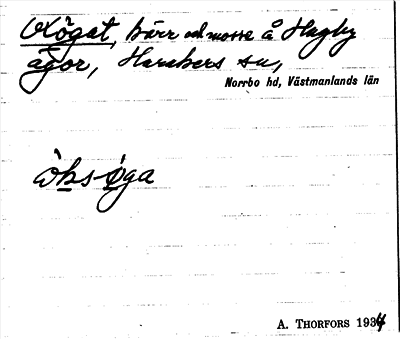 Oxögat, kärr och mosse å Hagby
ägor, Harakers sn,
Norrbo hd, Västmanlands län
ò̀ks-ǿga
A. THORFORS 1934